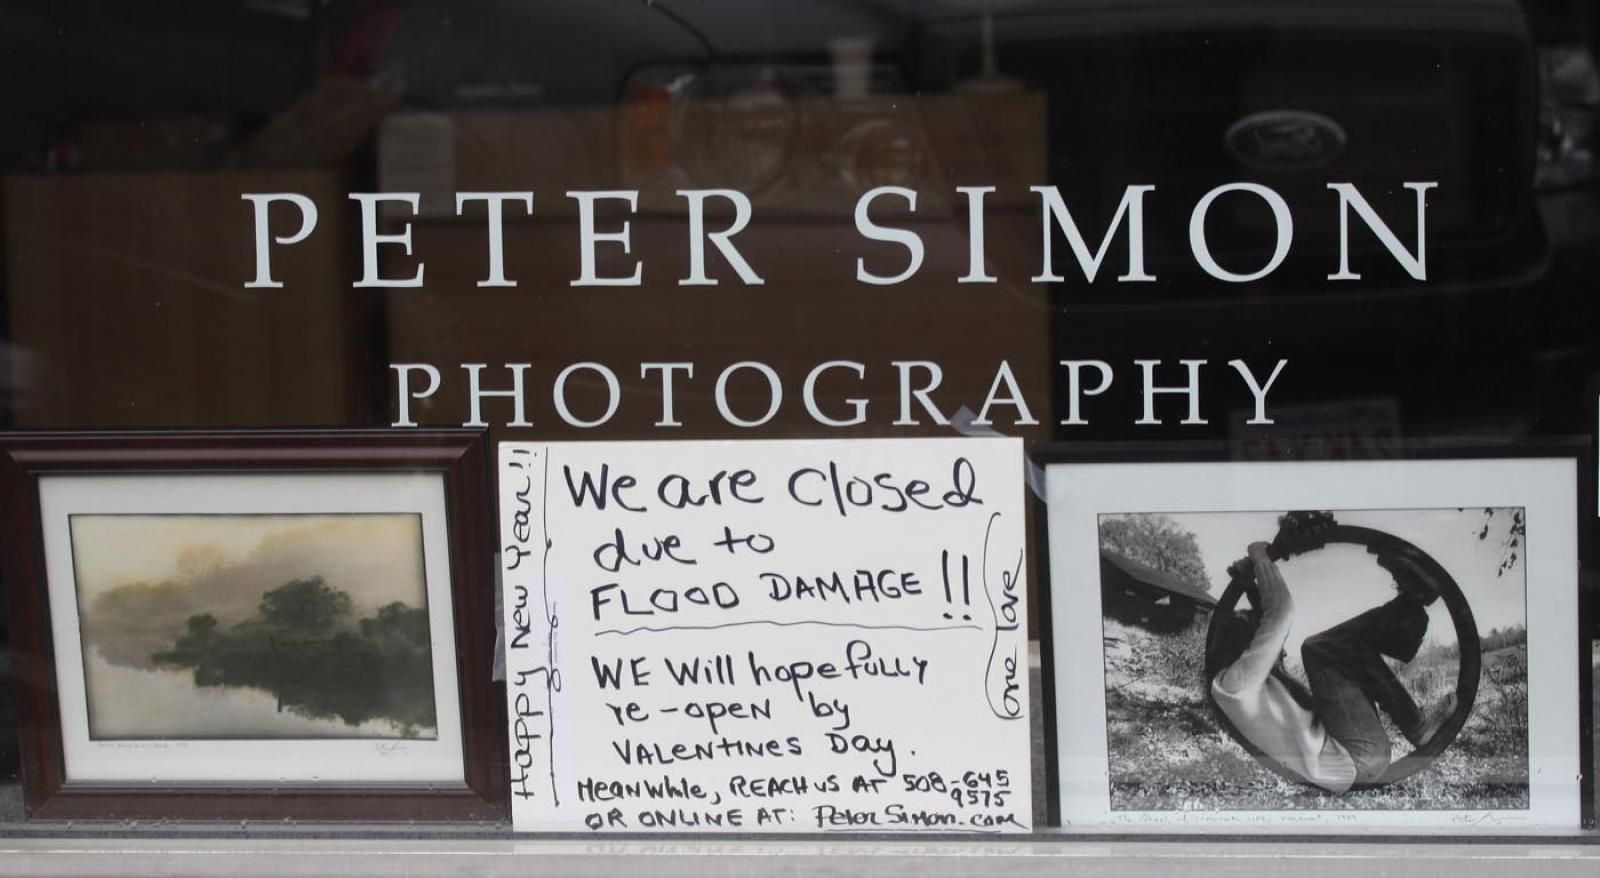 Ford
PETER SIMON
PHOTOGRAPHY
Happy New Year!!
We are closed
due to
FLOOD DAMAGE!!
WE Will hopefully
re-open by
VALENTINES Day.
MeanWhile, REACH US AT 508-645
9575
OR ONLINE AT: PeterSimon.com
one love